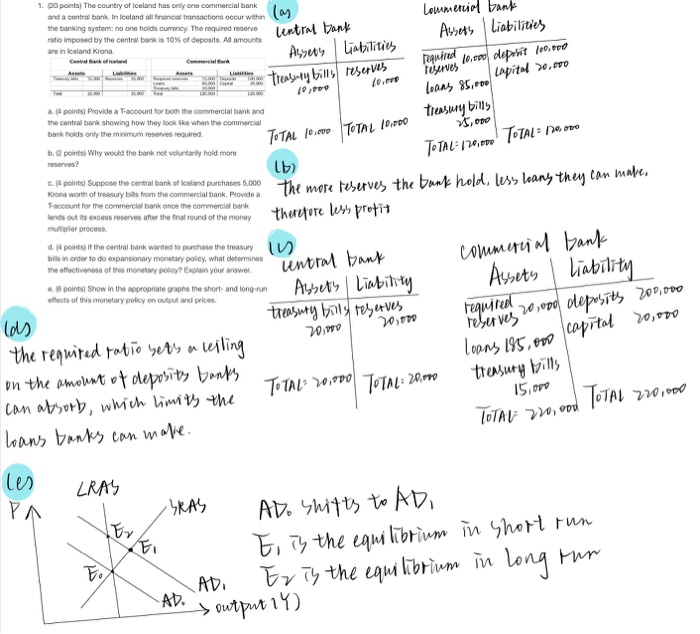 1. (20 points) The country of Iceland has only one commercial bank
and a central bank. In Iceland all financial transactions occur within
the banking system: no one holds currency. The required reserve
ratio imposed by the central bank is 10% of deposits. All amounts
are in Iceland Krona.
Central Bank of Iceland
Commercial Bank
Assets Liabilities Assets Liabilities
a. (4 points) Provide a T-account for both the commercial bank and
the central bank showing how they look like when the commercial
bank holds only the minimum reserves required.
b. (2 points) Why would the bank not voluntarily hold more
reserves?
c. (4 points) Suppose the central bank of Iceland purchases 5,000
Krona worth of treasury bills from the commercial bank. Provide a
T-account for the commercial bank once the commercial bank
lends out its excess reserves after the final round of the money
multiplier process.
d. (4 points) If the central bank wanted to purchase the treasury
bills in order to do expansionary monetary policy, what determines
the effectiveness of this monetary policy? Explain your answer.
e. (6 points) Show in the appropriate graphs the short- and long-run
effects of this monetary policy on output and prices.
(a)
Central bank
Assets Liabilities
treasury bills reserves
10,000 10,000
TOTAL 10,000 TOTAL 10,000
Commercial bank
Assets Liabilities
required 10,000 deposit 100,000
reserves capital 20,000
loans 85,000
treasury bills
25,000
TOTAL: 120,000 TOTAL = 120,000
(b)
The more reserves the bank hold, less loans they can make,
therefore less profit
(c)
Central bank
Assets Liability
treasury bills reserves
20,000 20,000
TOTAL: 20,000 TOTAL: 20,000
commercial bank
Assets Liability
required 20,000 deposits 200,000
reserves capital 20,000
loans 185,000
treasury bills
15,000
TOTAL: 220,000 TOTAL 220,000
(d)
the required ratio sets a ceiling
on the amount of deposits banks
can absorb, which limits the
loans banks can make.
(e)
P
LRAS
SRAS
E2
E1
E0
AD1
AD0
output (Y)
AD0 shifts to AD1
E1 is the equilibrium in short run
E2 is the equilibrium in long run